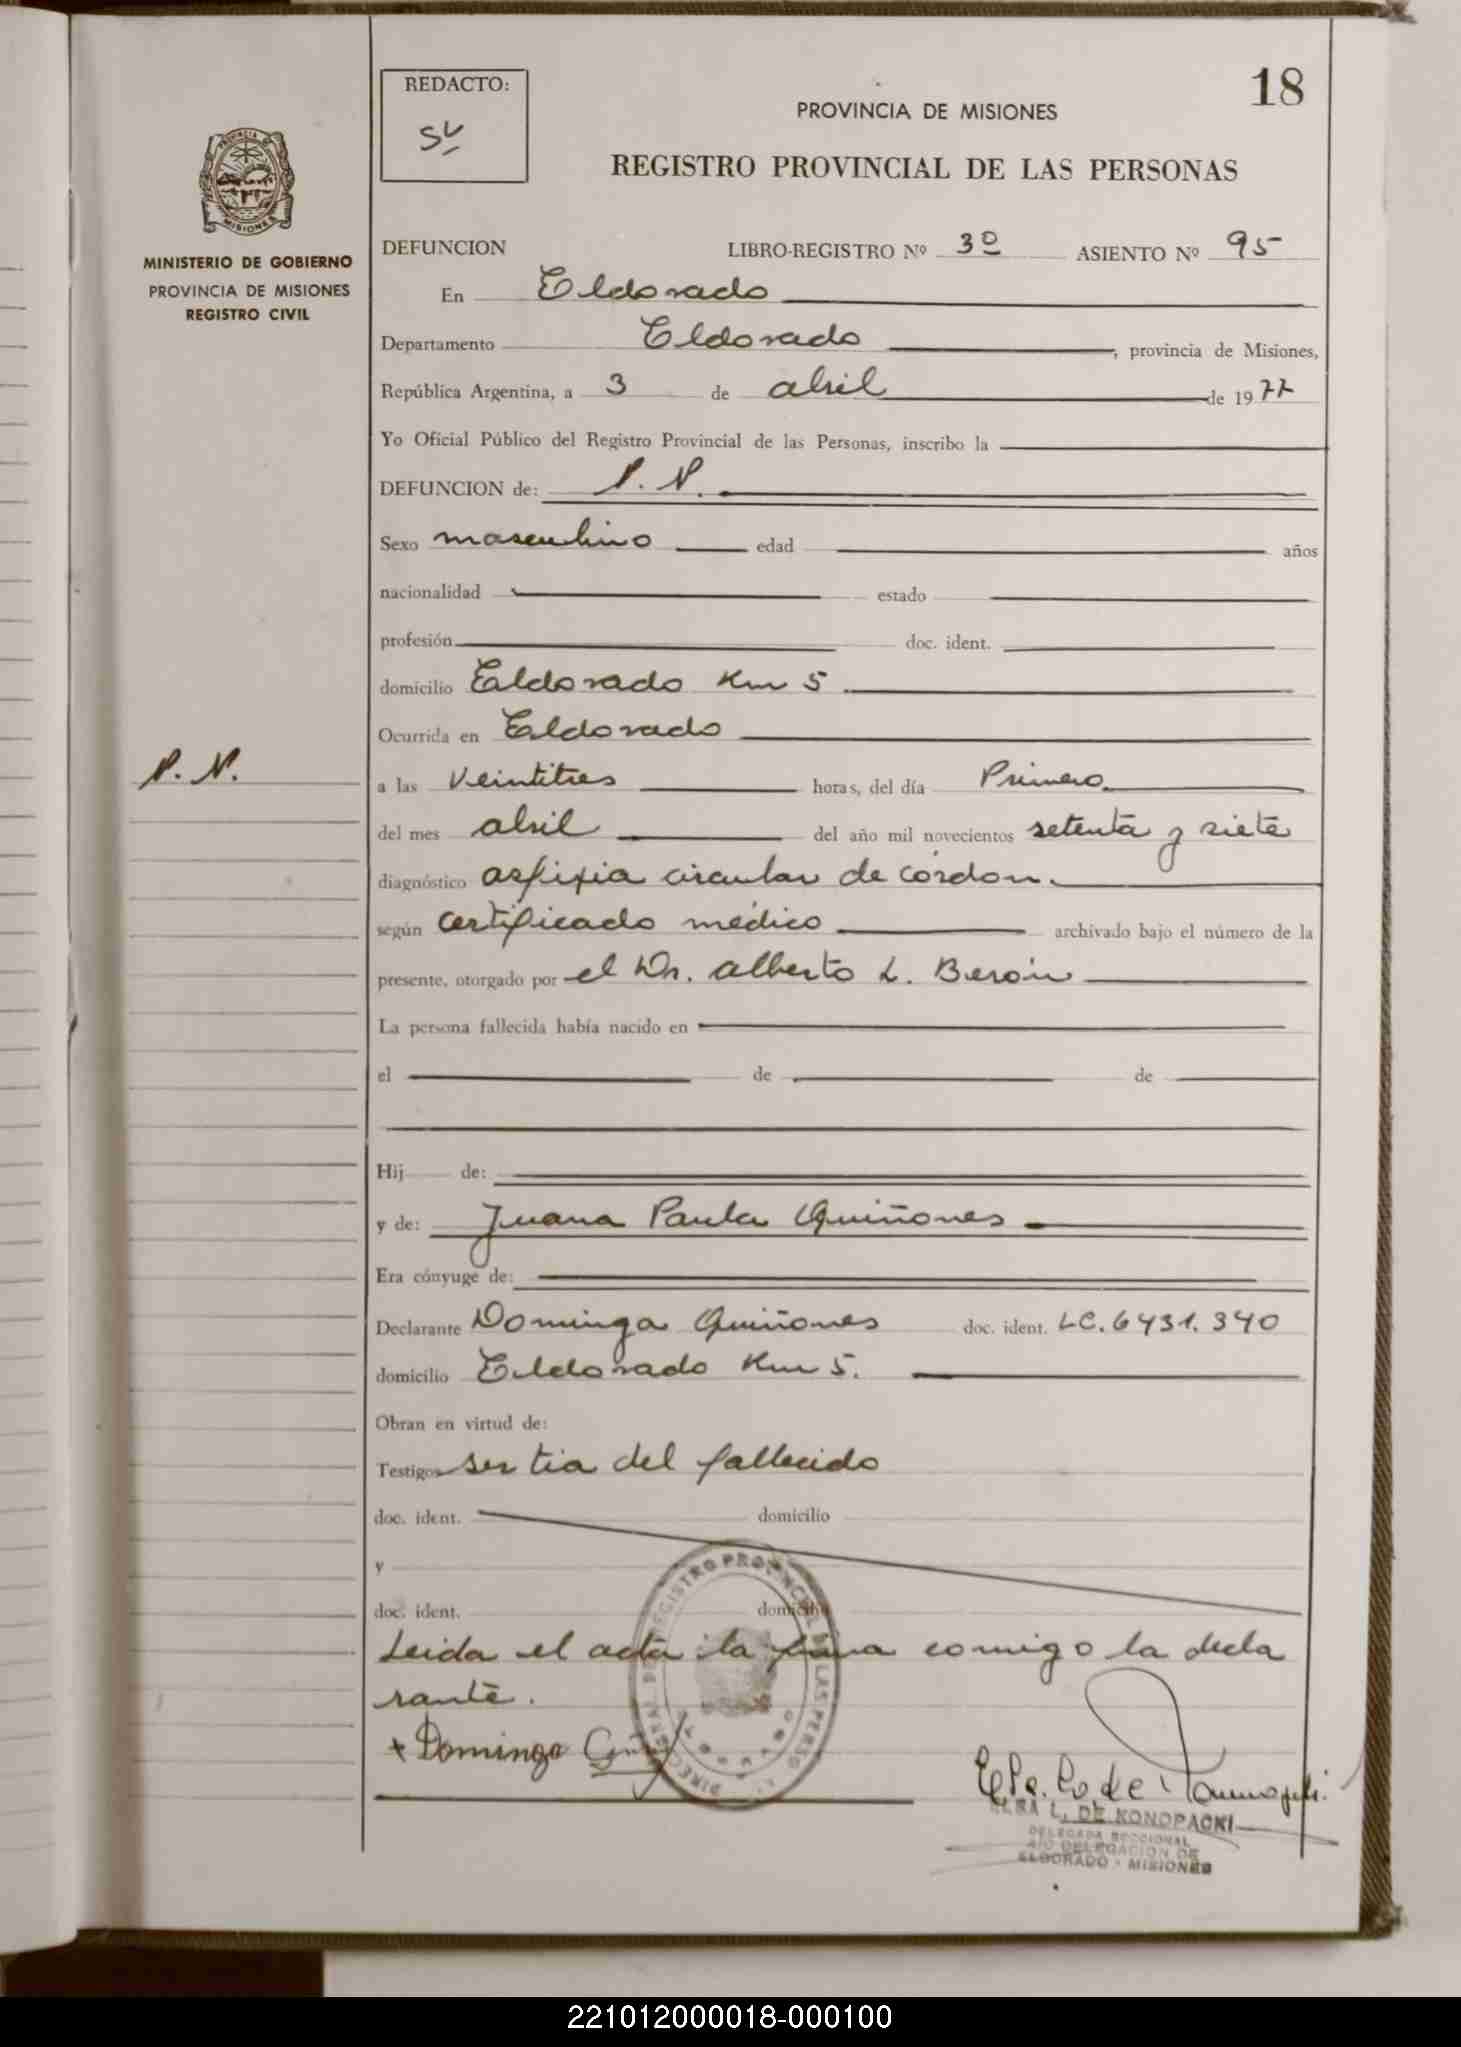 18
REDACTO:
SL
PROVINCIA DE MISIONES
REGISTRO PROVINCIAL DE LAS PERSONAS
MINISTERIO DE GOBIERNO
PROVINCIA DE MISIONES
REGISTRO CIVIL
DEFUNCION LIBRO-REGISTRO Nº 3º ASIENTO Nº 95
En Eldorado
Departamento Eldorado, provincia de Misiones,
República Argentina, a 3 de abril de 1977
Yo Oficial Público del Registro Provincial de las Personas, inscribo la
DEFUNCION de: N. N.
Sexo masculino edad años
nacionalidad estado
profesión doc. ident.
domicilio Eldorado Km 5
Ocurrida en Eldorado
N. N.
a las Veintitres horas, del día Primero.
del mes abril del año mil novecientos setenta y siete
diagnóstico asfixia circular de cordon.
según certificado médico archivado bajo el número de la
presente, otorgado por el Dr. Alberto L. Berón
La persona fallecida había nacido en
el de de
Hij de:
y de: Juana Paula Quiñones
Era cónyuge de:
Declarante Dominga Quiñones doc. ident. LC. 6431.340
domicilio Eldorado Km 5.
Obran en virtud de:
Testigos ser tia del fallecido
doc. ident. domicilio
y
doc. ident. domicilio
Leida el acta la firma conmigo la decla
rante.
+ Dominga
DIRECC. GRAL. DEL REGISTRO PROVINCIAL DE LAS PERSO
ELBA L. DE KONOPACKI
DELEGADA SECCIONAL
A/C DELEGACION DE
ELDORADO - MISIONES
221012000018-000100